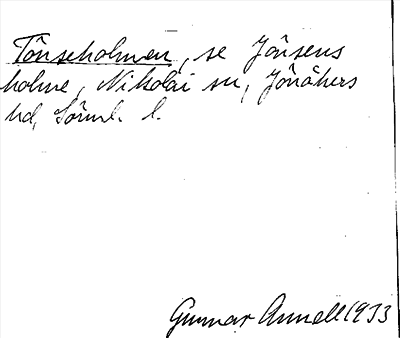 Tönseholmen, se Jönsens
holme, Nikolai sn, Jönåkers
hd, Sörml. l.
Gunnar Annell 1933